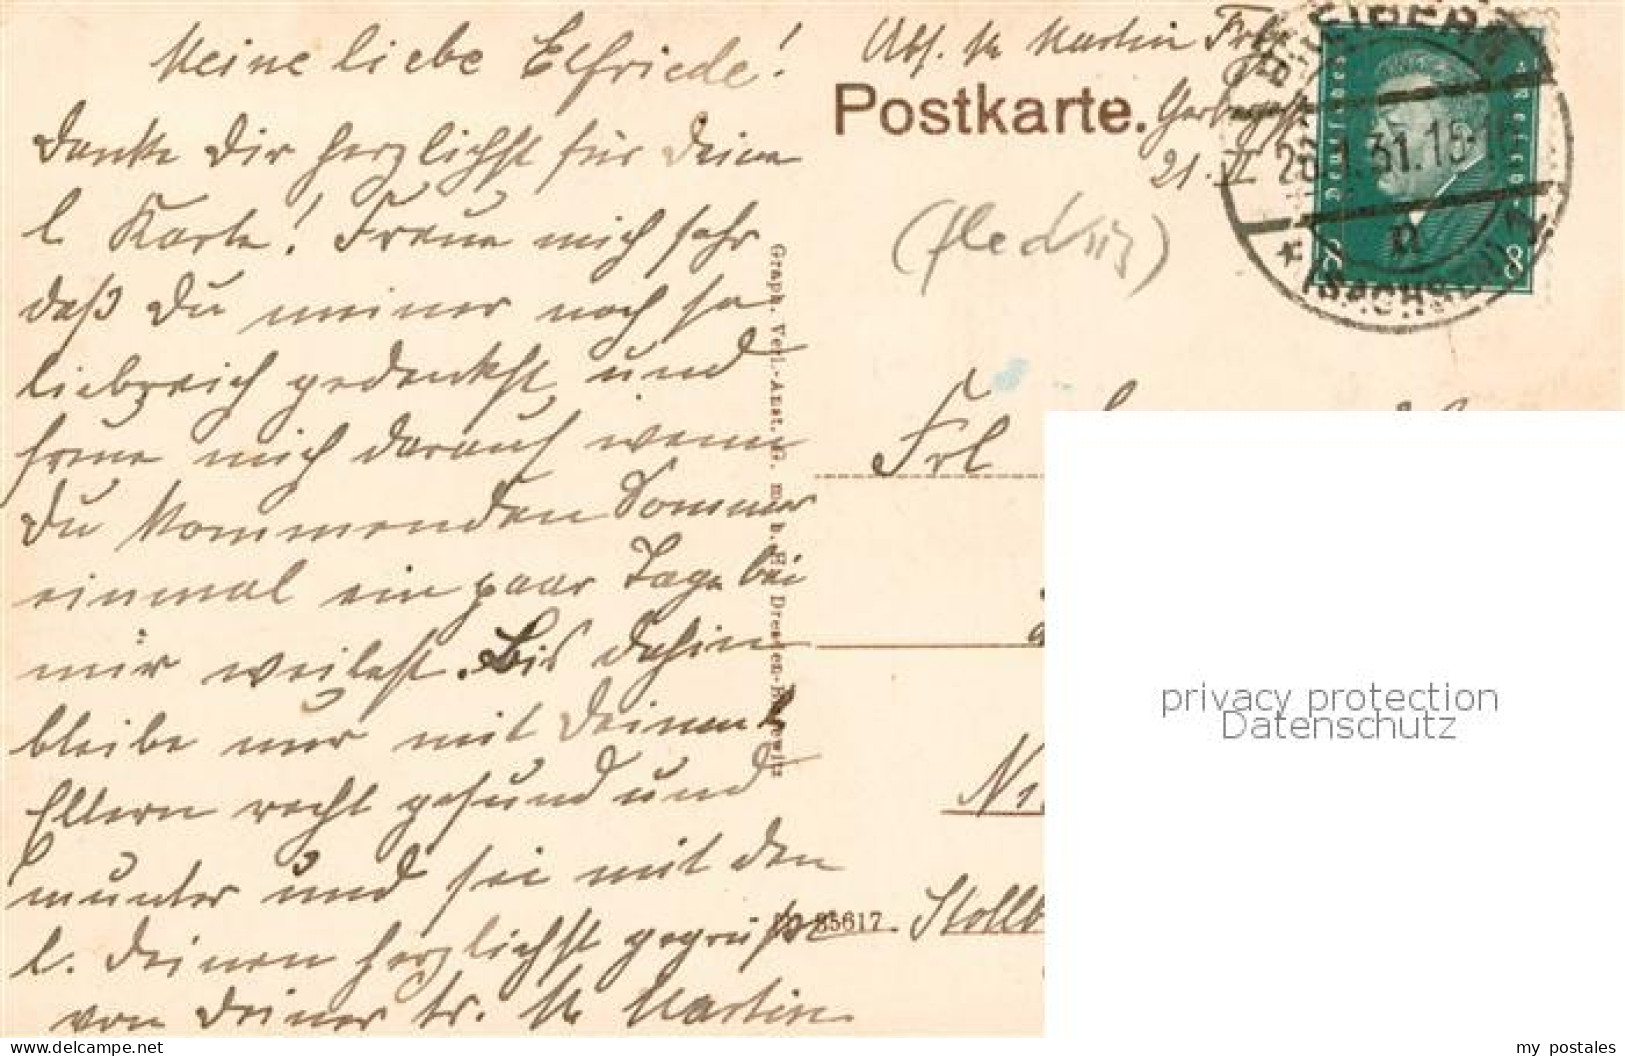 Meine liebe Elfriede!
Danke Dir herzlichst für Deine
l. Karte! Freue mich sehr
daß Du meiner noch so
liebreich gedenkst und
freue mich darauf wenn
Du kommenden Sommer
einmal ein paar Tage bei
mir weilest. Bis dahin
bleibe nur mit Deinen l.
Eltern recht gesund und
munter und sei mit den
l. Deinen herzlichst gegrüßt
von Deiner tr. M Martin.
Abs. M Martin
Postkarte.
21. II
Deutsches Reich
8 8
31.15-16
n
* (SACHSEN)
Graph. Verl.-Anst. G. m. b. H., Dresden-
Frl
85617.
Stollb
privacy protection
Datenschutz
https://www.delcampe.net/en_GB/collectibles/
my postales